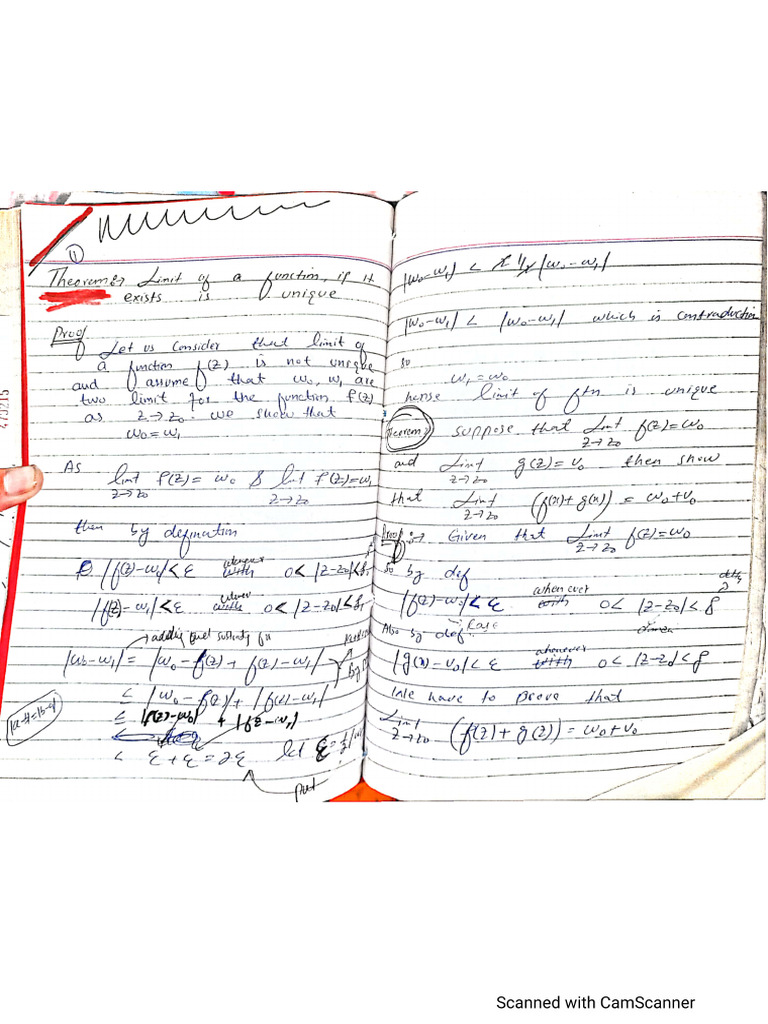 ①
Theorem:→ Limit of a function, if it
exists is unique
Proof
Let us consider that limit of
a function f(z) is not unique
and assume that w₀, w₁ are
two limit for the function f(z)
as z→z₀. we show that
w₀=w₁
As
limt f(z)= w₀ & limt f(z)=w₁
z→z₀ z→z₀
then by defination
|f(z)-w₀|<ε whenever 0<|z-z₀|<δ₁
|f(z)-w₁|<ε 0<|z-z₀|<δ₁
adding
|w₀-w₁| = |w₀-f(z)+f(z)-w₁|
< |w₀-f(z)|+|f(z)-w₁|
≤ |f(z)-w₀| + |fz-w₁|
< ε+ε=2ε let ε=½|w
put
|w₀-w₁| < 2 1/2 |w₀-w₁|
|w₀-w₁| < |w₀-w₁| which is contraduction
so
w₁=w₀
hense limit of ftn is unique
Theorem:→ suppose that Limt f(z)=w₀
z→z₀
and Limt g(z)=v₀ then show
z→z₀
that Limt (f(x)+g(x))=w₀+v₀
z→z₀
Proof:→ Given that Limt f(z)=w₀
z→z₀
so by def
|f(z)-w₀|<ε whenever 0<|z-z₀|<δ
Also by def
|g(x)-v₀|<ε whenever 0<|z-z₀|<δ
We have to prove that
Limt (f(z)+g(z))=w₀+v₀
z→z₀
Scanned with CamScanner